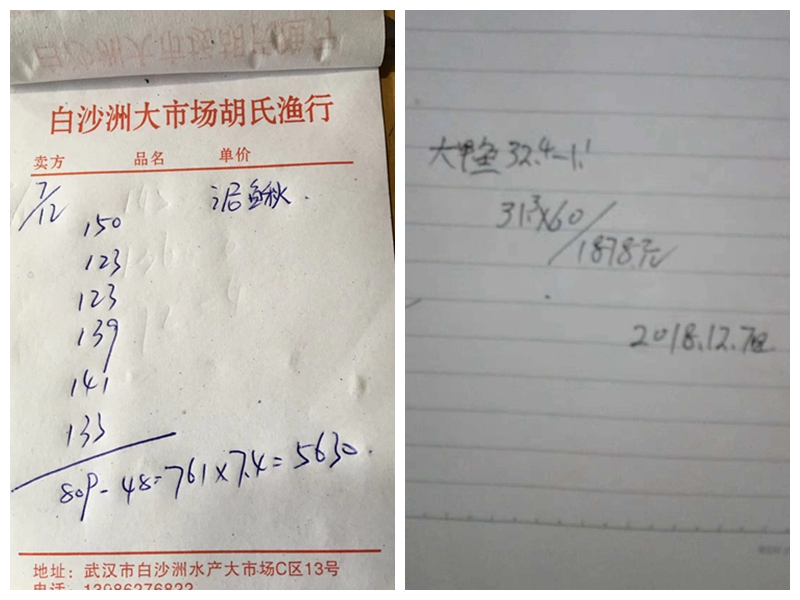 白沙洲大市场胡氏渔行
卖方 品名 单价
7/12 泥鳅.
150
123
123
139
141
133
809-48=761×7.4=5630.
地址：武汉市白沙洲水产大市场C区13号
电话：13986276822
大甲鱼 32.4-1.1
31.3×60
1878元
2018.12.7日